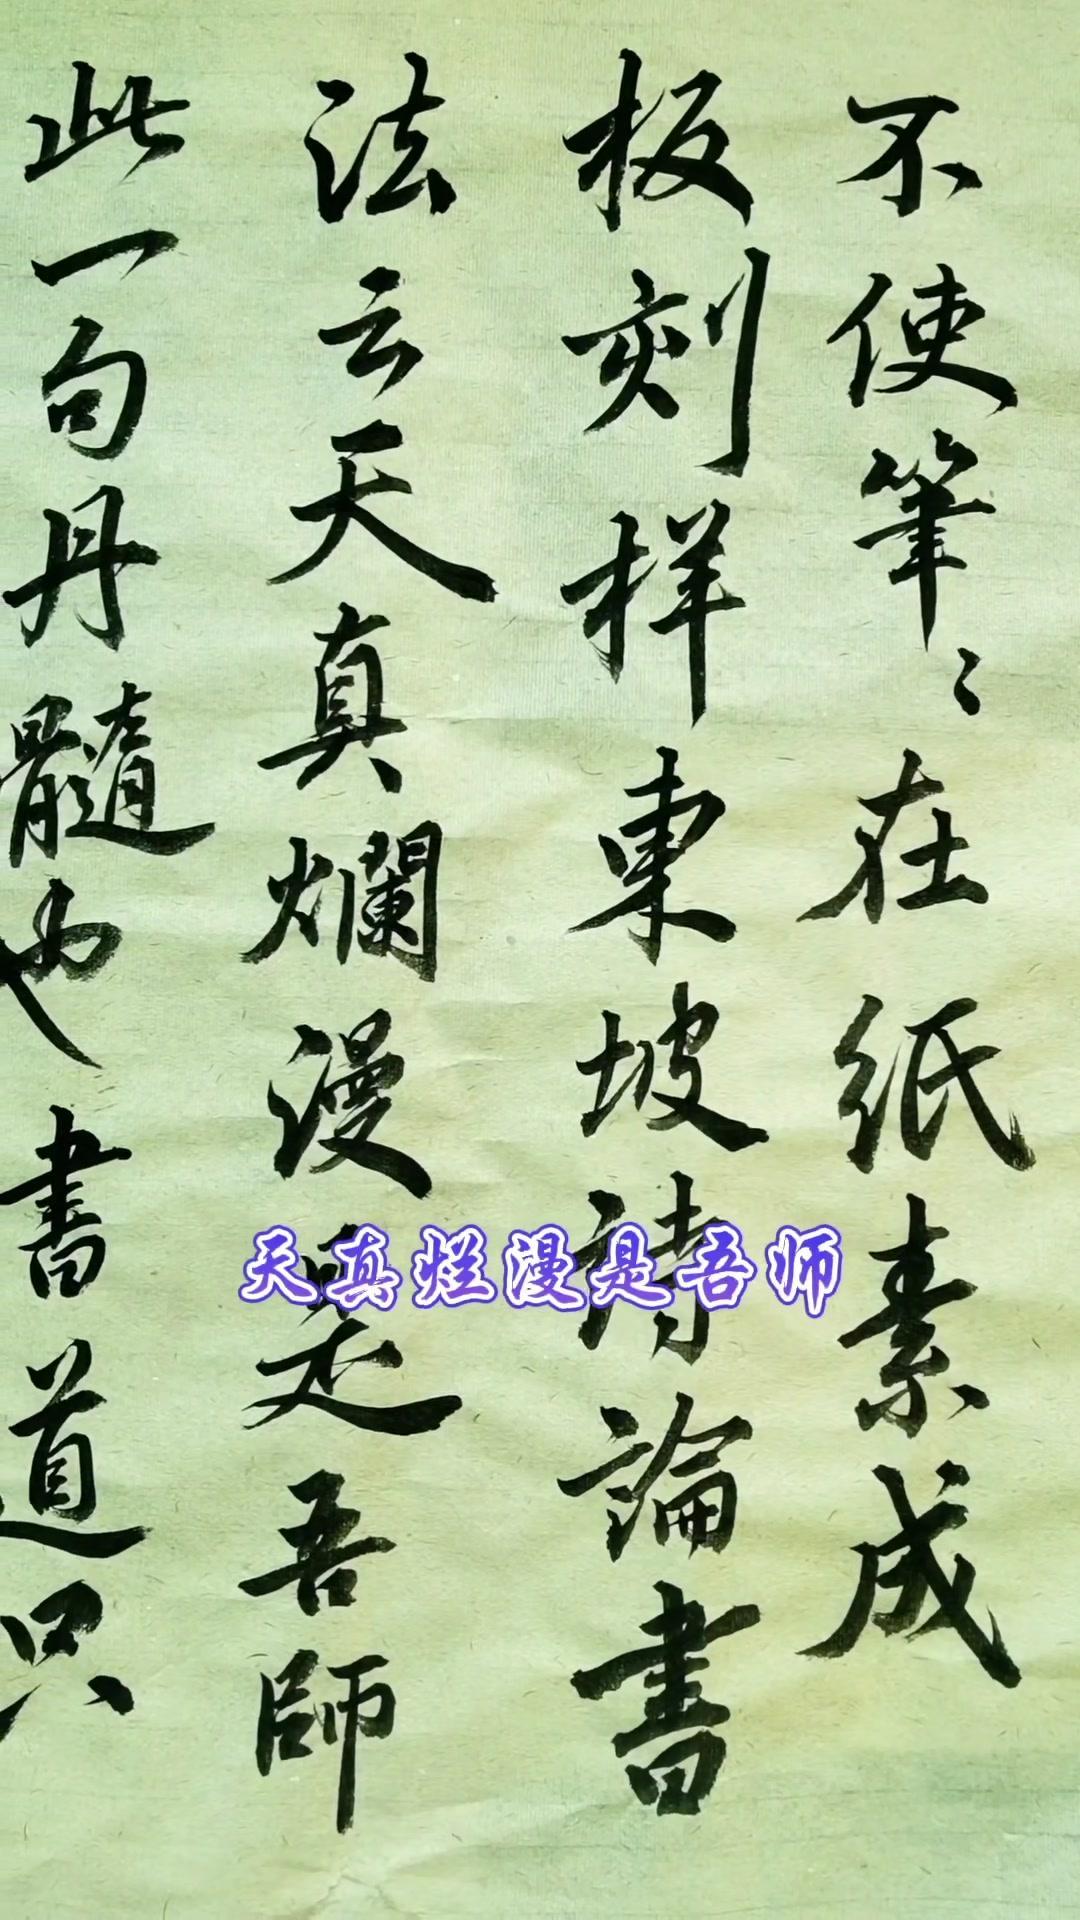 不使筆〻在紙素成
板刻样東坡詩論書
法云天真爛漫是吾師
此一句丹髓也書道只
天真烂漫是吾师